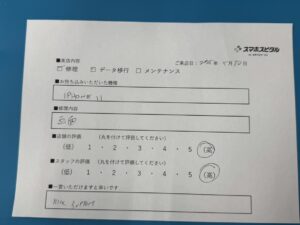 スマホスピタル
ご来店日：
■来店内容
☑ 修理 ☑ データ移行 □ メンテナンス
■お持ち込みいただいた機種
iPHONE 11
■修理内容
■店舗の評価 （丸を付けて評価してください）
(低) 1 ・ 2 ・ 3 ・ 4 ・ 5 (高)
■スタッフの評価 （丸を付けて評価してください）
(低) 1 ・ 2 ・ 3 ・ 4 ・ 5 (高)
■一言いただけますと幸いです